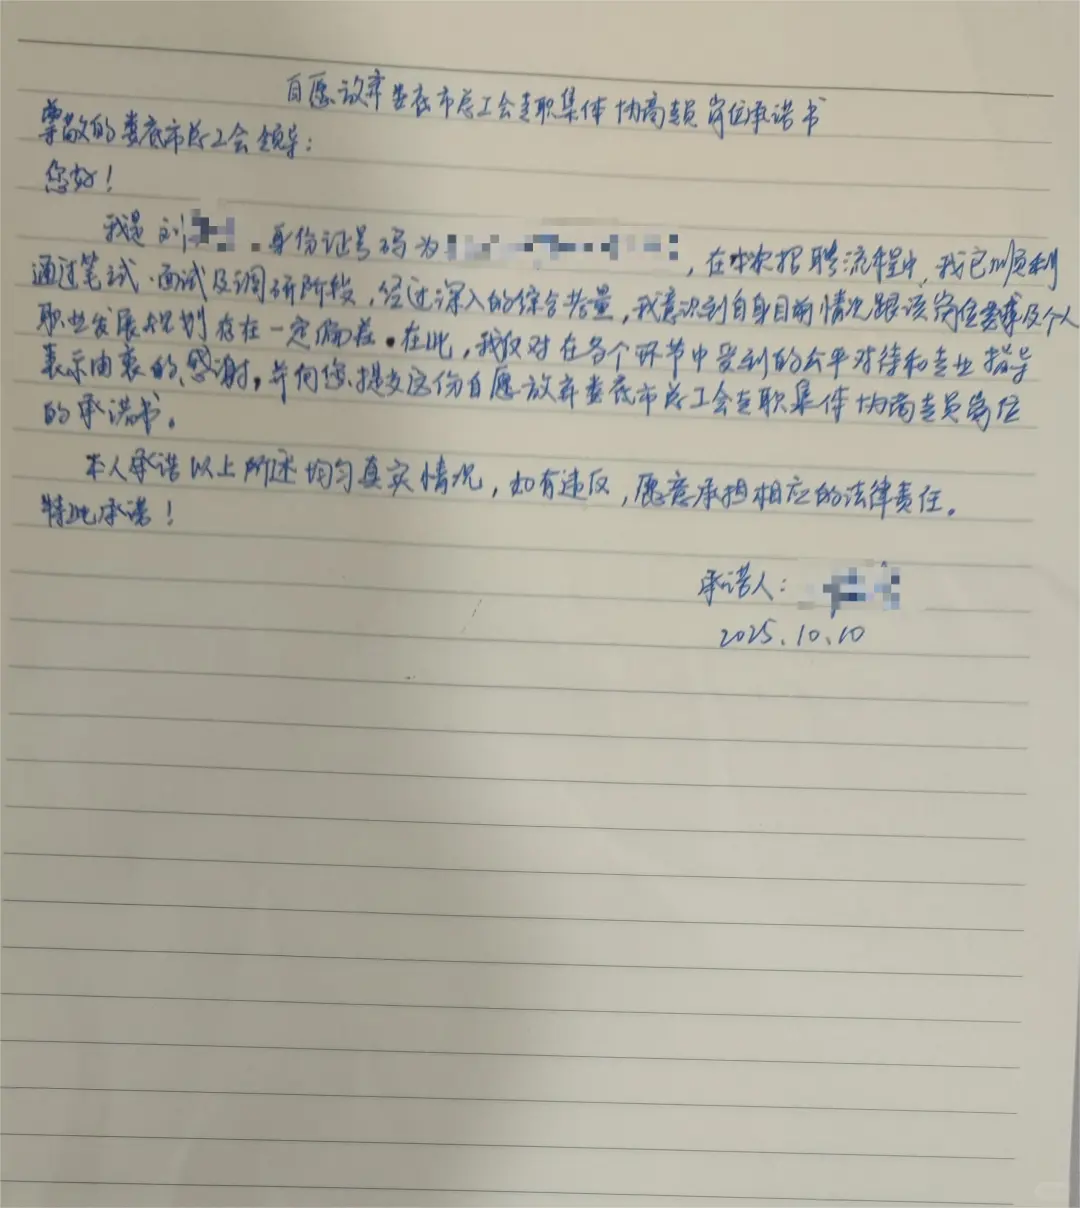 自愿放弃娄底市总工会专职集体协商专员岗位承诺书
尊敬的娄底市总工会领导：
您好！
我是刘 ，身份证号码为 ，在本次招聘流程中，我已顺利
通过笔试、面试及调研阶段，经过深入的综合考量，我意识到自身目前情况跟该岗位要求及个人
职业发展规划存在一定偏差。在此，我仅对在各个环节中受到的公平对待和专业指导
表示由衷的感谢，并向您提交这份自愿放弃娄底市总工会专职集体协商专员岗位
的承诺书。
本人承诺以上所述均匀真实情况，如有违反，愿意承担相应的法律责任。
特此承诺！
承诺人：
2025.10.10